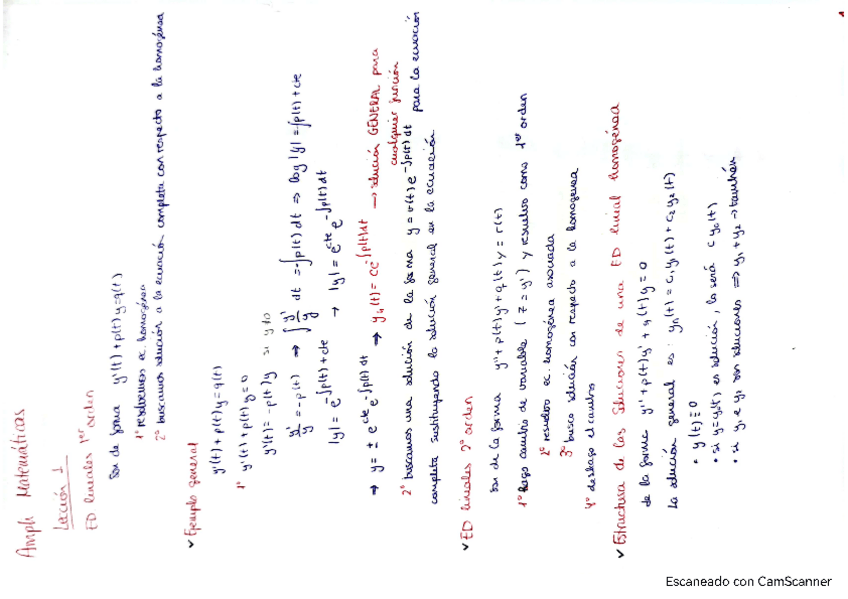 Ampli Matemáticas
Lección 1
ED lineales 1er orden
Son de forma y'(t)+p(t)y=q(t)
1º resolvemos ec. homogénea
2º buscamos solución a la ecuación completa con respecto a la homogénea
✓ Ejemplo general
y'(t)+p(t)y=q(t)
1º y'(t)+p(t)y=0
y'(t)=-p(t)y si y≠0
y'/y = -p(t) ⇒ ∫ y'/y dt = -∫p(t)dt ⇒ log|y| = -∫p(t)+cte
|y| = e^{-∫p(t)+cte} → |y| = e^{cte} e^{-∫p(t)dt}
→ y = ± e^{cte} e^{-∫p(t)dt} → y_h(t) = C e^{-∫p(t)dt} → solución GENERAL para
cualquier función
2º buscamos una solución de la forma y = v(t) e^{-∫p(t)dt} para la ecuación
completa sustituyendo la solución general en la ecuación
✓ ED lineales 2º orden
son de la forma y''+p(t)y'+q(t)y=r(t)
1º hago cambio de variable (z=y') y resuelvo como 1er orden
2º resuelvo ec. homogénea asociada
3º busco solución con respecto a la homogénea
4º deshago el cambio
✓ Estructura de las Soluciones de una ED lineal homogénea
de la forma y''+p(t)y'+q(t)y=0
La solución general es: y_h(t) = c₁y₁(t)+c₂y₂(t)
• y(t)≡0
• si y=y₀(t) es solución, lo será c y₀(t)
• si y₁ e y₂ son soluciones ⇒ y₁+y₂ → también
Escaneado con CamScanner